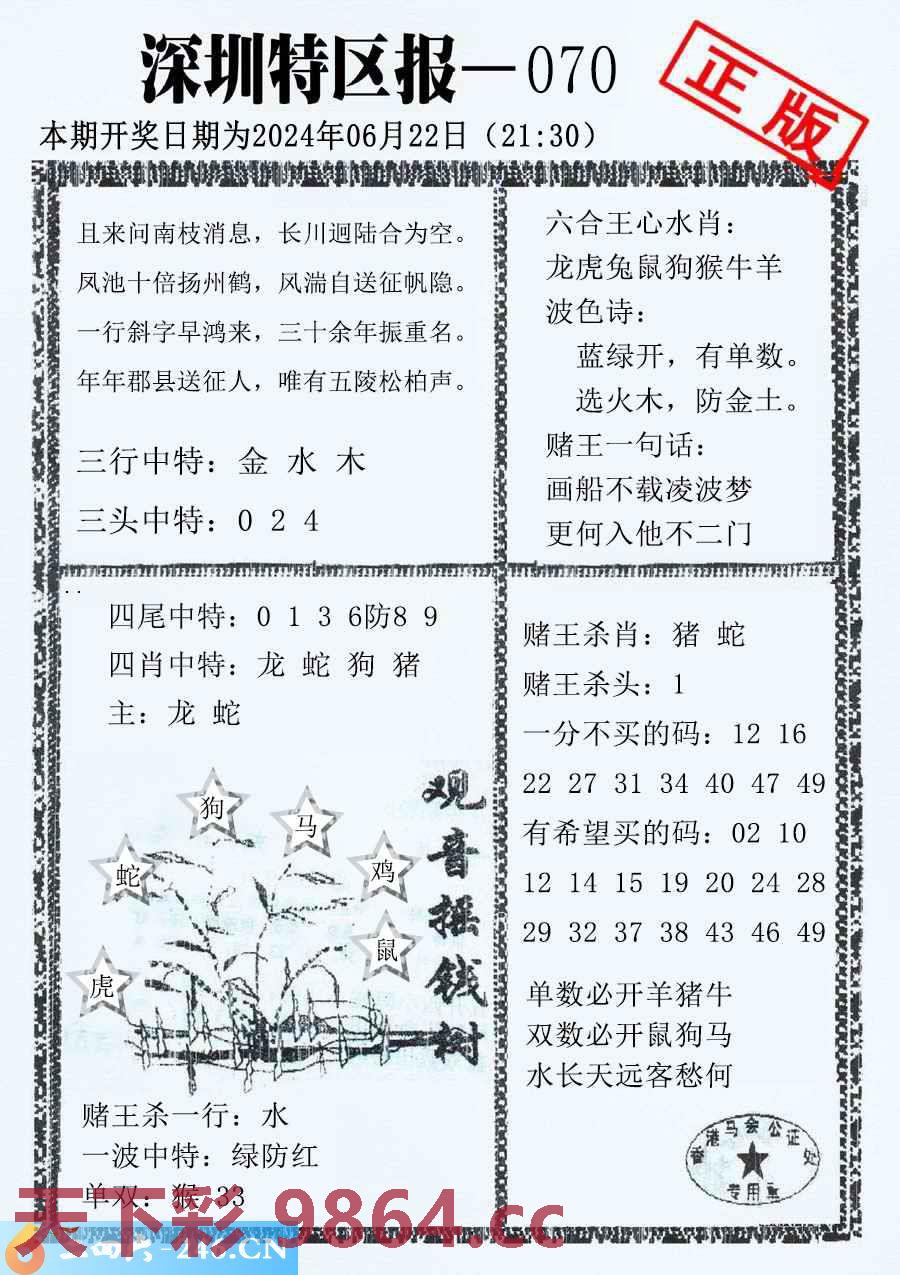 深圳特区报—070
正版
本期开奖日期为2024年06月22日（21:30）
且来问南枝消息，长川迥陆合为空。
凤池十倍扬州鹤，风湍自送征帆隐。
一行斜字早鸿来，三十余年振重名。
年年郡县送征人，唯有五陵松柏声。
三行中特：金 水 木
三头中特：0 2 4
六合王心水肖：
龙虎兔鼠狗猴牛羊
波色诗：
蓝绿开，有单数。
选火木，防金土。
赌王一句话：
画船不载凌波梦
更何入他不二门
四尾中特：0 1 3 6防8 9
四肖中特：龙 蛇 狗 猪
主：龙 蛇
狗
马
蛇
鸡
鼠
虎
观音摇钱树
赌王杀一行：水
一波中特：绿防红
单双：猴 33
赌王杀肖：猪 蛇
赌王杀头：1
一分不买的码：12 16
22 27 31 34 40 47 49
有希望买的码：02 10
12 14 15 19 20 24 28
29 32 37 38 43 46 49
单数必开羊猪牛
双数必开鼠狗马
水长天远客愁何
香港马会公证处
专用章
天下彩 9864.cc